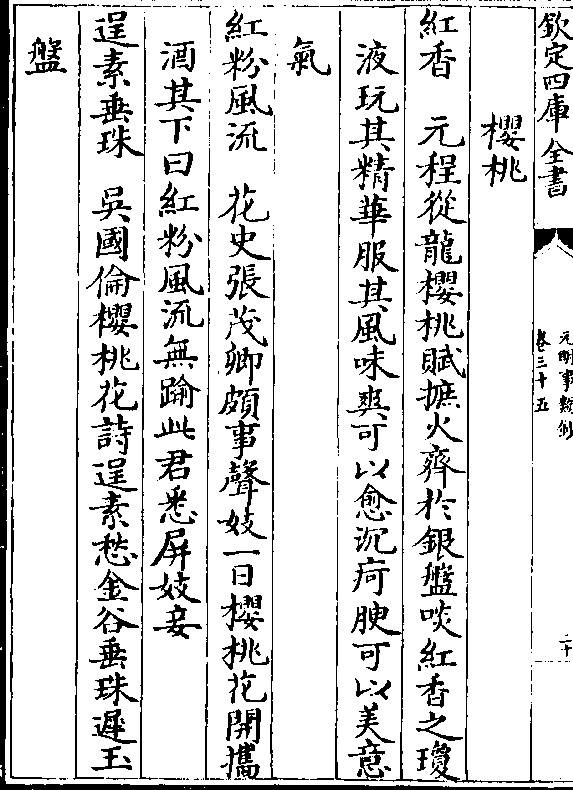 欽定四庫全書
元明事類鈔
卷三十五
二十
櫻桃
紅香　元程從龍櫻桃賦摭火齊於銀盤啖紅香之瓊
液玩其精華服其風味爽可以愈沉疴腴可以美意
氣
紅粉風流　花史張茂卿頗事聲妓一日櫻桃花開攜
酒其下曰紅粉風流無踰此君悉屏妓妾
逞素垂珠　吳國倫櫻桃花詩逞素愁金谷垂珠遲玉
盤